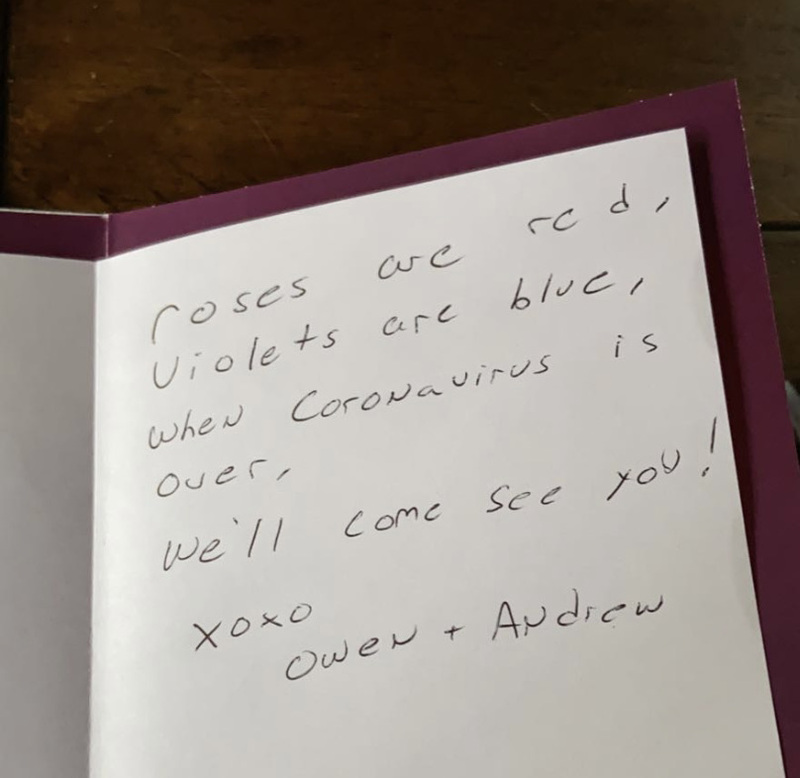 roses are red,
Violets are blue,
when Coronavirus is
over,
We'll come see you!
xoxo
Owen + Andrew